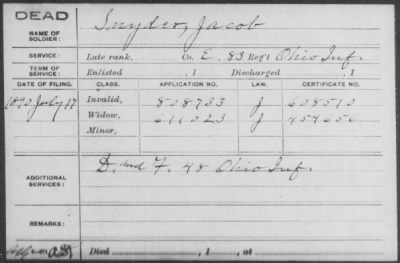 DEAD
NAME OF SOLDIER: Snyder, Jacob
SERVICE: Late rank, Co. E. 83 Reg't Ohio Inf.
TERM OF SERVICE: Enlisted , 1 Discharged , 1
DATE OF FILING. CLASS. APPLICATION NO. LAW. CERTIFICATE NO.
1890 July 17 Invalid, 808733 J 608510
Widow, 611023 J 454656
Minor,
ADDITIONAL SERVICES: D. and F. 48 Ohio Inf.
REMARKS:
Died , 1 , at